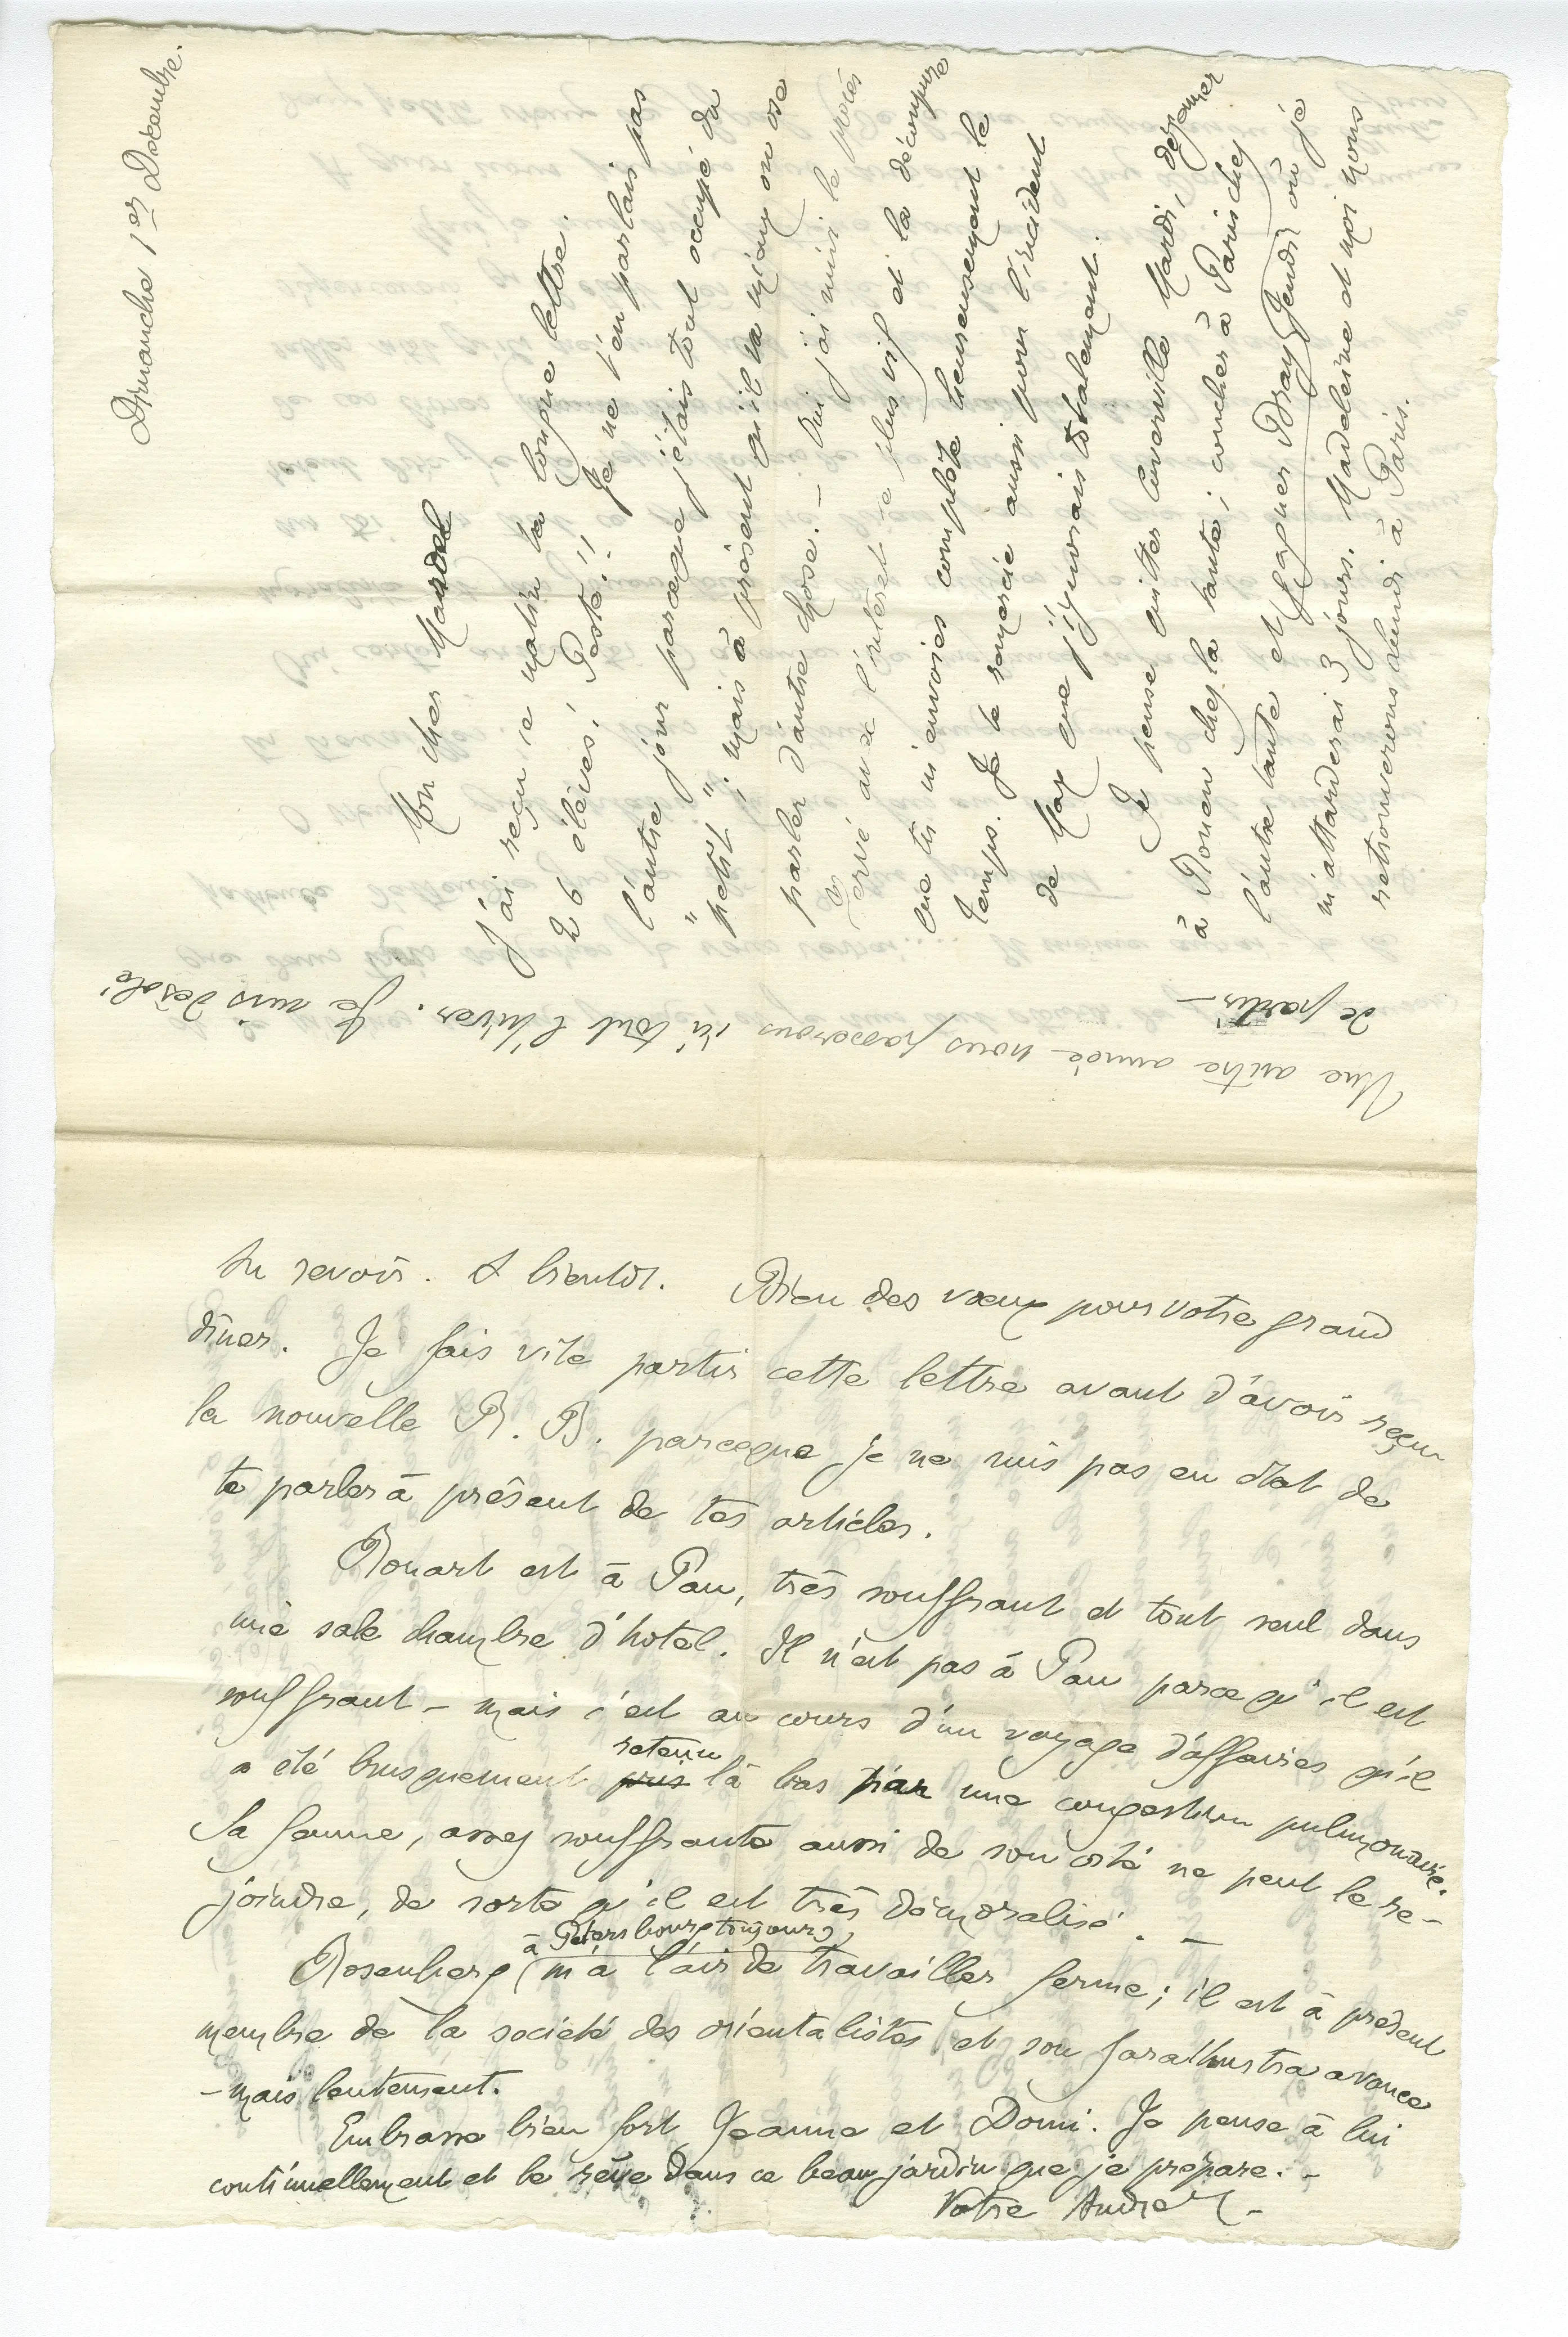 Dimanche 1er Décembre.
Mon cher Marcel
J'ai reçu ce matin ta longue lettre.
26 élèves! Peste!! Je ne t'en parlais pas
l'autre jour parceque j'étais tout occupé du
"petit"; mais à présent qu'il va mieux on ose
parler d'autre chose. — Oui j'ai suivi le procès
Hervé avec l'intérêt le plus vif et la découpure
que tu m'envoies complète heureusement le
Temps. Je te remercie aussi pour l'incident
de Max que j'ignorais totalement.
Je pense quitter Cuverville Mardi, déjeuner
à Rouen chez la tante; coucher à Paris chez
l'autre tante et gagner Bray Jeudi où je
m'attarderai 3 jours. Madeleine et moi nous
retrouverons lundi à Paris.
Une autre année nous passerons ici tout l'hiver. Je suis désolé
de partir —
Au revoir. A bientôt. Bien des vœux pour votre grand
dîner. Je fais vite partir cette lettre avant d'avoir reçu
la nouvelle R. B. parceque je ne suis pas en état de
te parler à présent de tes articles.
Rouart est à Pau, très souffrant et tout seul dans
une sale chambre d'hotel. Il n'est pas à Pau parce qu'il est
souffrant — mais c'est au cours d'un voyage d'affaires qu'il
a été brusquement pris retenu là bas par une congestion pulmonaire.
Sa femme, assez souffrante aussi de son côté ne peut le re-
joindre, de sorte qu'il est très démoralisé. —
Rosenberg (à Petersbourg toujours) m'a l'air de travailler ferme; il est à présent
membre de la société des orientalistes et son Zarathustra avance
— mais lentement.
Embrasse bien fort Jeanne et Domi. Je pense à lui
continuellement et le rêve dans ce beau jardin que je prépare. —
Votre André —